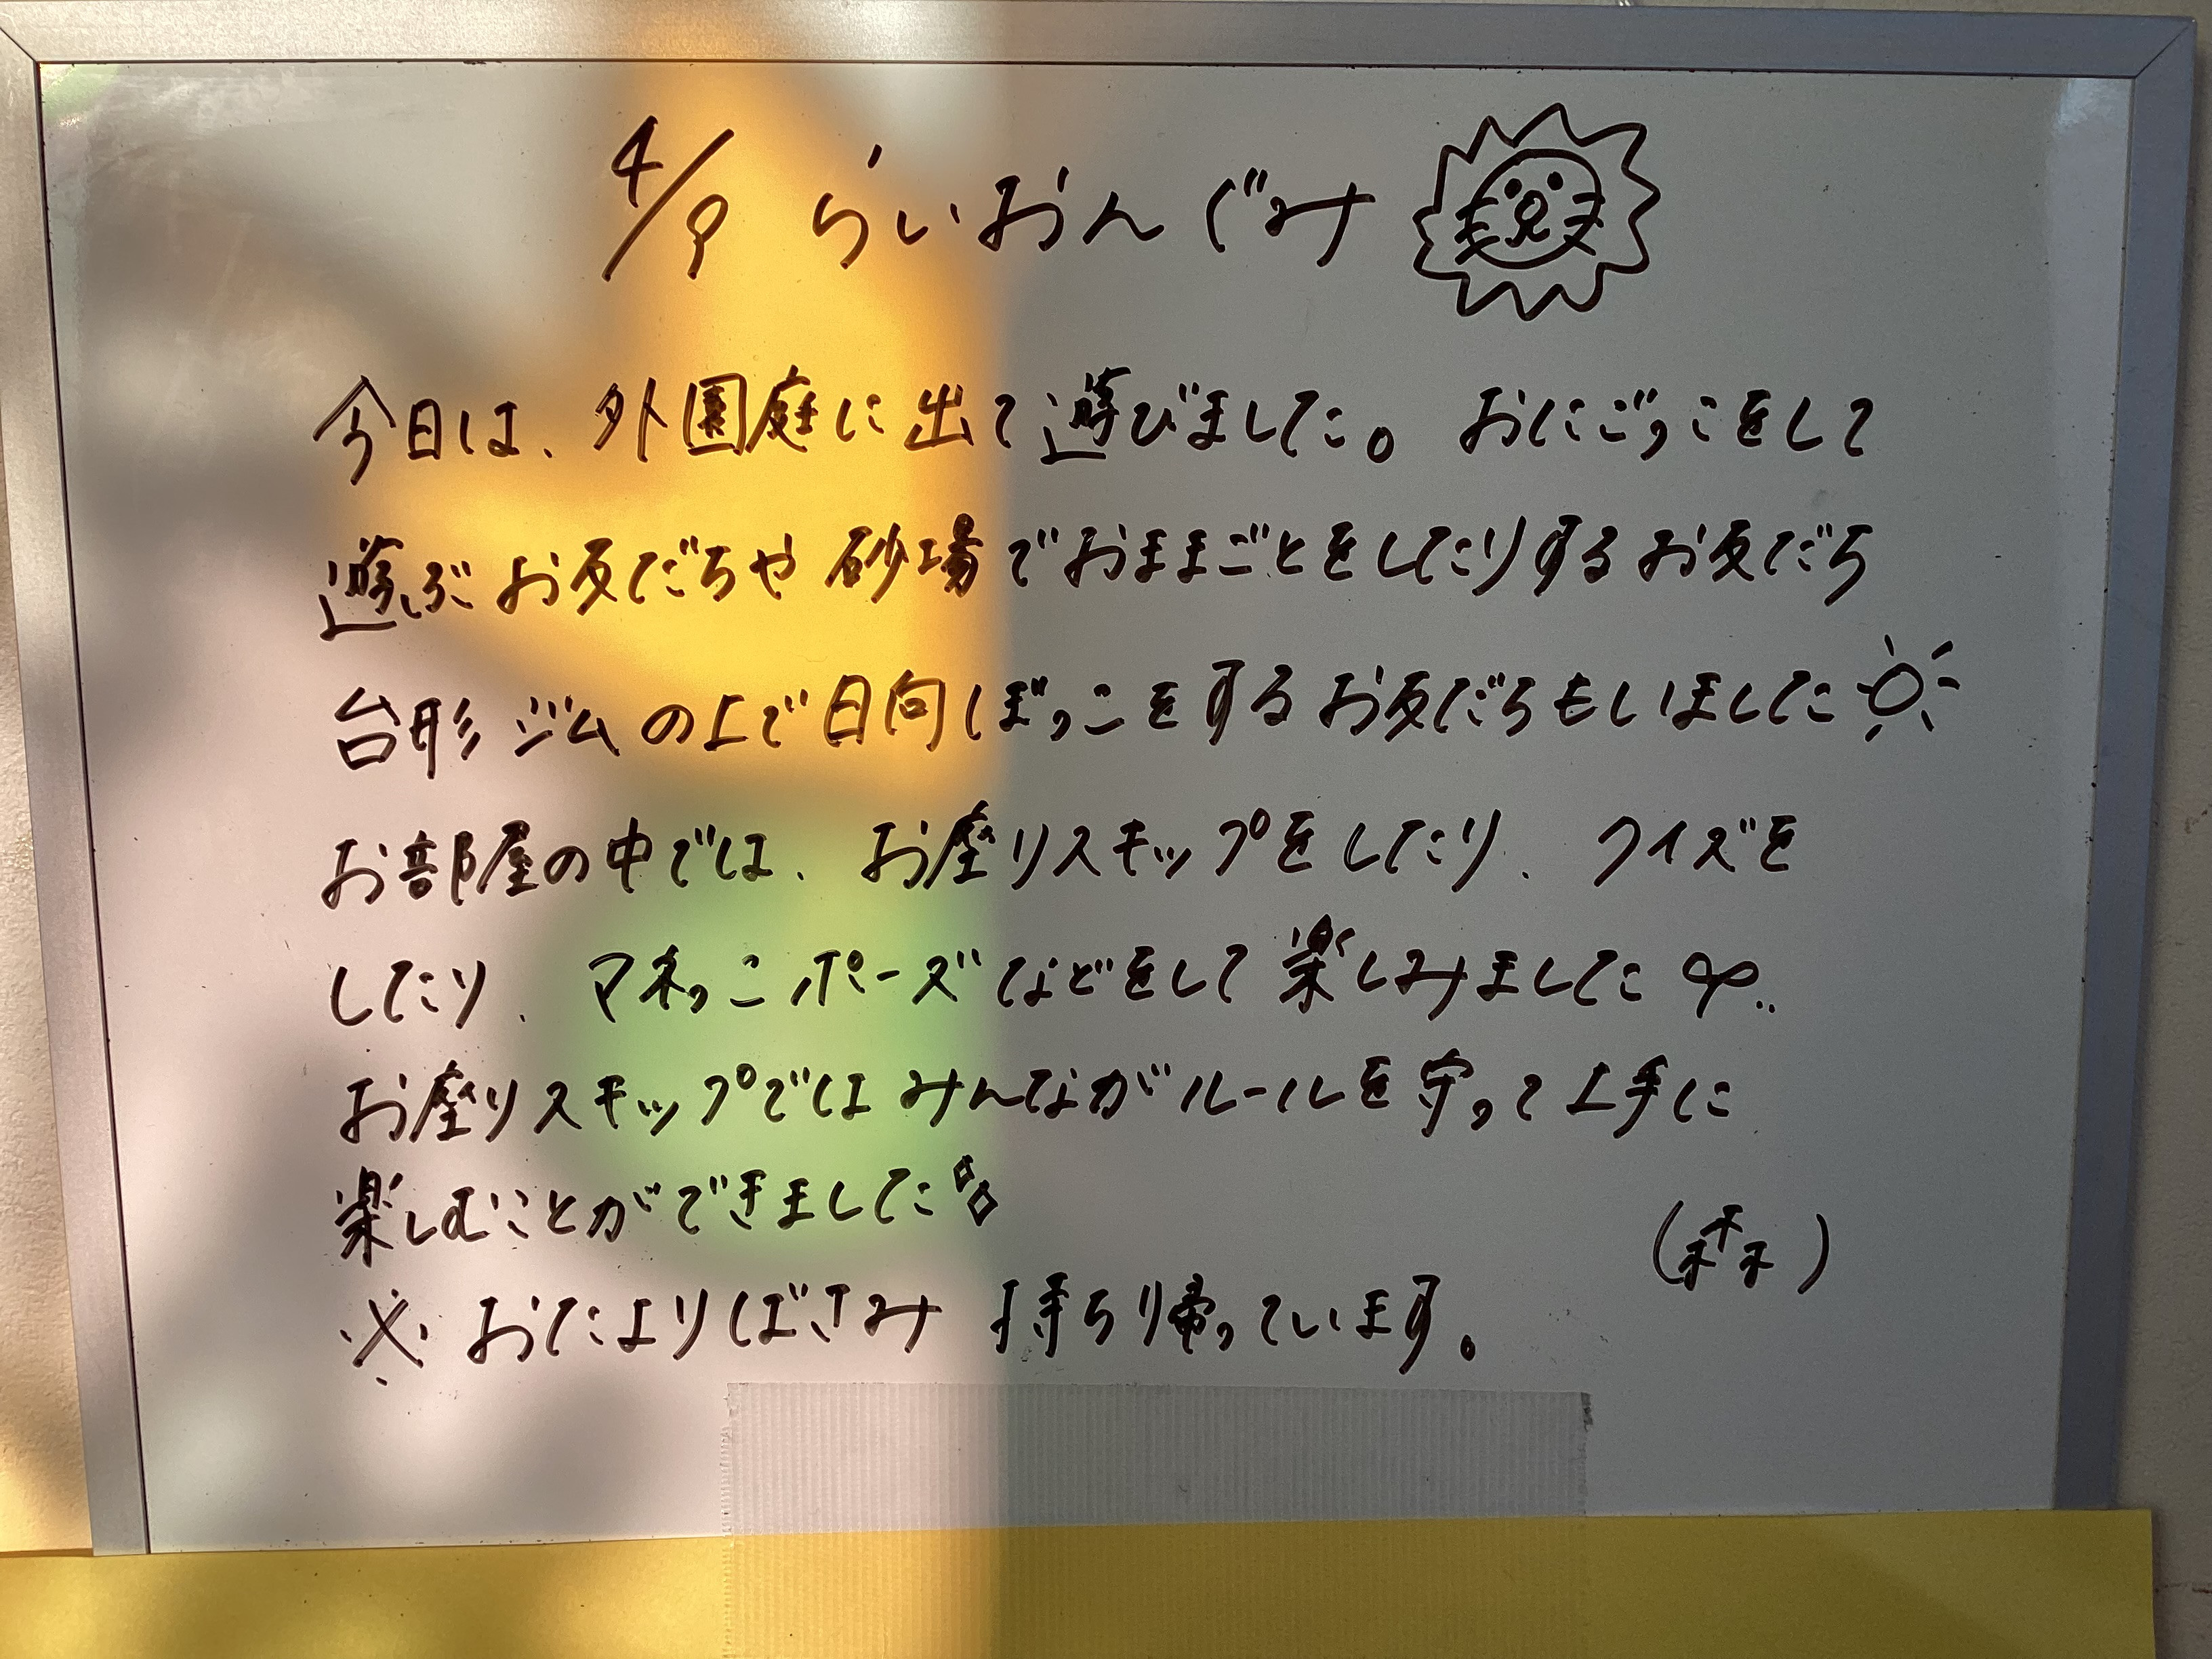 4/9 らいおんぐみ
今日は、外園庭に出て遊びました。おにごっこをして
遊ぶお友だちや砂場でおままごとをしたりするお友だち
台形ジムの上で日向ぼっこをするお友だちもいました
お部屋の中では、お座りスキップをしたり、クイズを
したり、マネっこポーズなどをして楽しみました
お座りスキップではみんながルールを守って上手に
楽しむことができました
(森)
※おたよりばさみ 持ち帰っています。